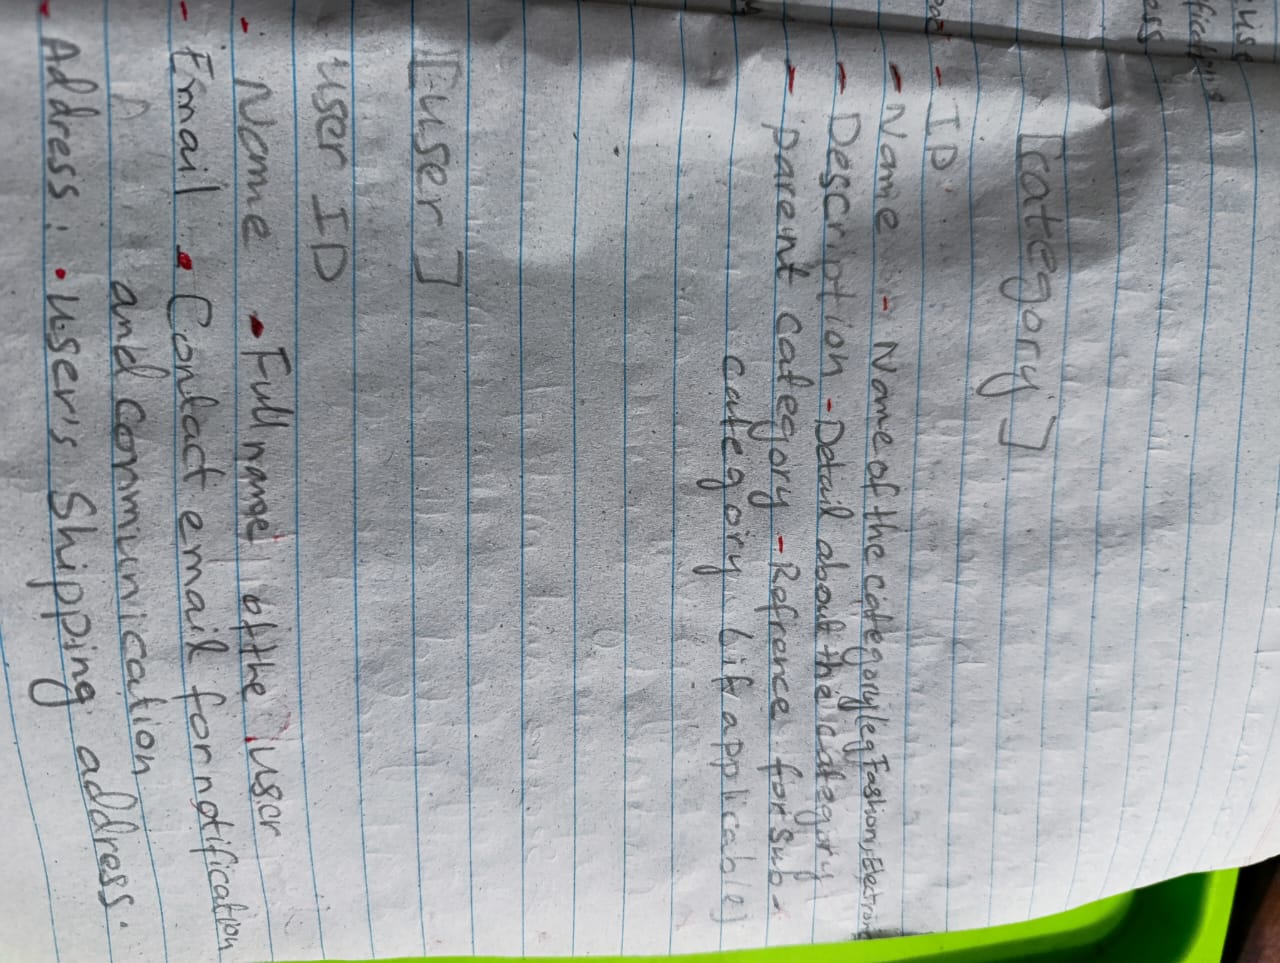 [category]
- ID
- Name - Name of the category (eg Fashion, Electron
- Description - Detail about the category
- parent category - Refrence for sub-
category (if applicable)
[user]
user ID
- Name - Full name of the user
- Email - Contact email for notification
and communication
- Address: - user's Shipping address.